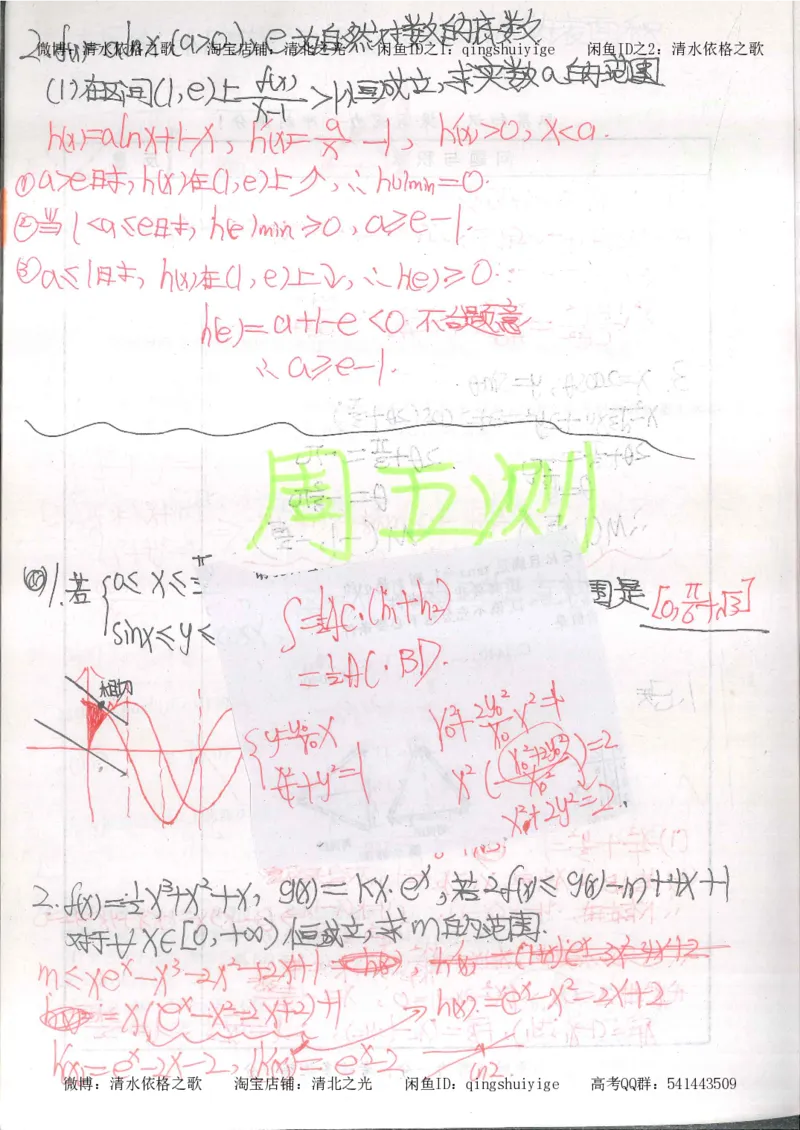 2. f(x)=alnx (a>0), e为自然对数的底数
微博:清水依格之歌 淘宝店铺:清北之光 闲鱼ID之1:qingshuiyige 闲鱼ID之2:清水依格之歌
(1)在区间(1,e)上 f(x)/(x-1) >1恒成立,求实数a的范围
h(x)=alnx+1-x, h'(x)=a/x-1, h'(x)>0, x<a.
①a>e时, h(x)在(1,e)上↗, ∴h(1)min=0.
②当1<a≤e时, h(e)min≥0, a≥e-1.
③a≤1时, h(x)在(1,e)上↘, ∴h(e)≥0.
h(e)=a+1-e<0 不合题意
∴a≥e-1.
周五测
1.若{a≤x≤π
sinx≤y≤
围是[0,π/6+√3]
S=½AC·(h₁+h₂)
=½AC·BD.
相切
{y=y₀/x₀ x
x²/2+y²=1
y₀²+2y₀²/x₀² x²=1
x²((x₀²+2y₀²)/x₀²)=2
x²+2y²=2.
2. f(x)=½x³+x²+x, g(x)=kx·eˣ, 若2f(x)≤g(x)-m+4x+1
对于∀x∈[0,+∞)恒成立,求m的范围.
m≤xeˣ-x³-2x²+2x+1
=x(eˣ-x²-2x+2)+1
h(x)=eˣ-x²-2x+2
h'(x)=eˣ-2x-2, h''(x)=eˣ-2
ln2
微博:清水依格之歌 淘宝店铺:清北之光 闲鱼ID:qingshuiyige 高考QQ群:541443509